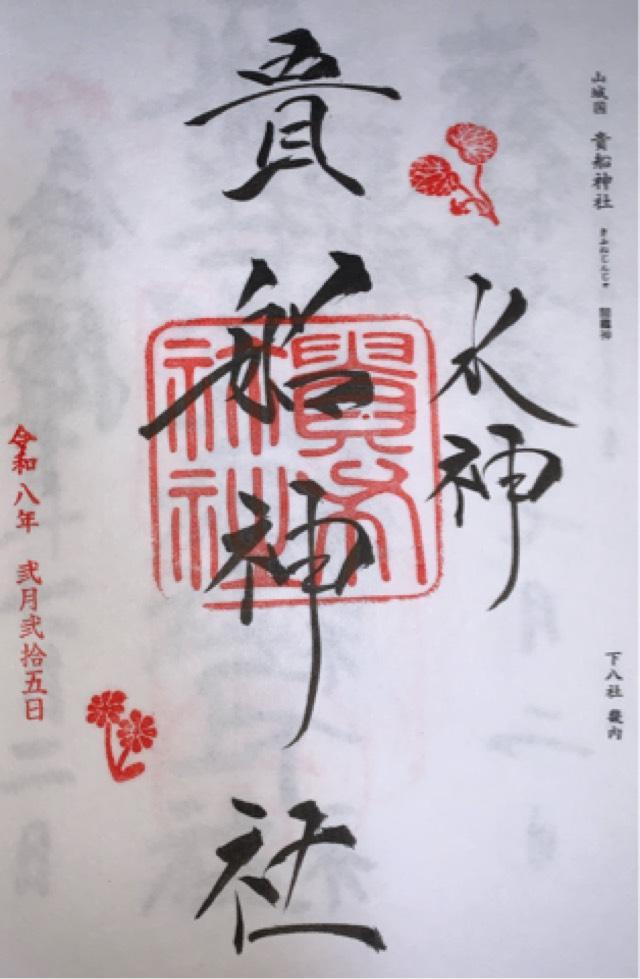 山城国 貴船神社 きふねじんじゃ
下八社 畿内
水神
貴船神社
令和八年 弐月弐拾五日